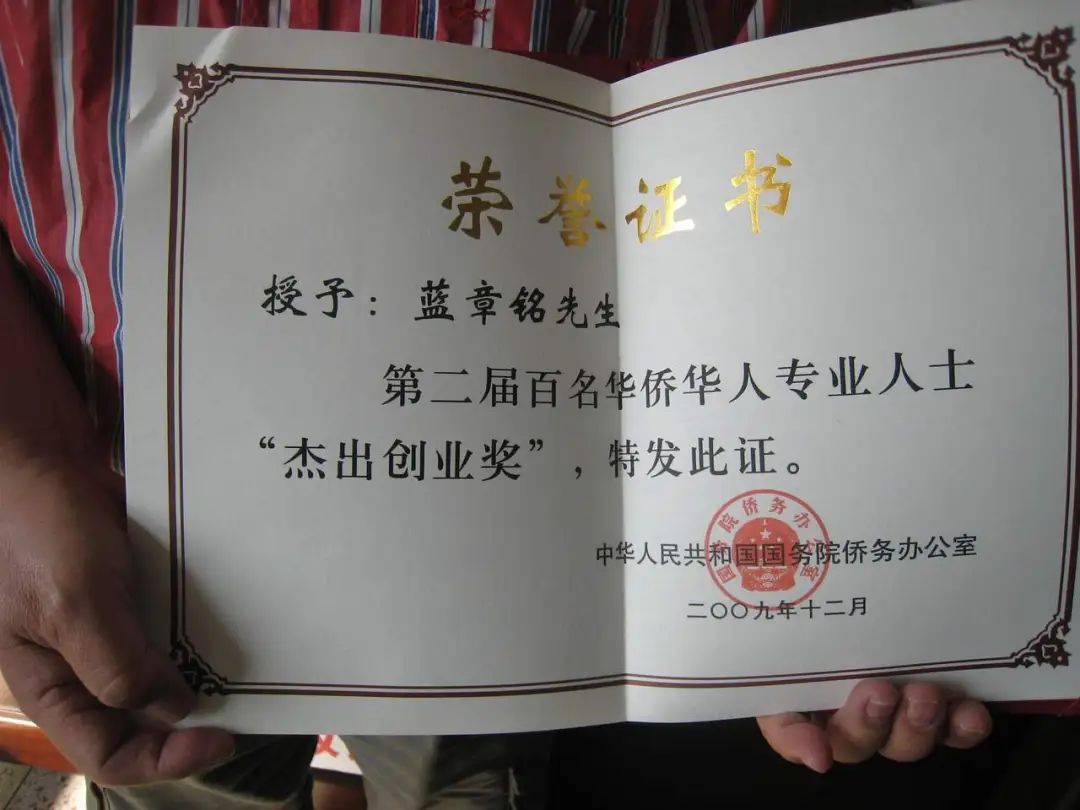 荣誉证书
授予：蓝章铭先生
第二届百名华侨华人专业人士
“杰出创业奖”，特发此证。
中华人民共和国国务院侨务办公室
国务院侨务办公室
二〇〇九年十二月